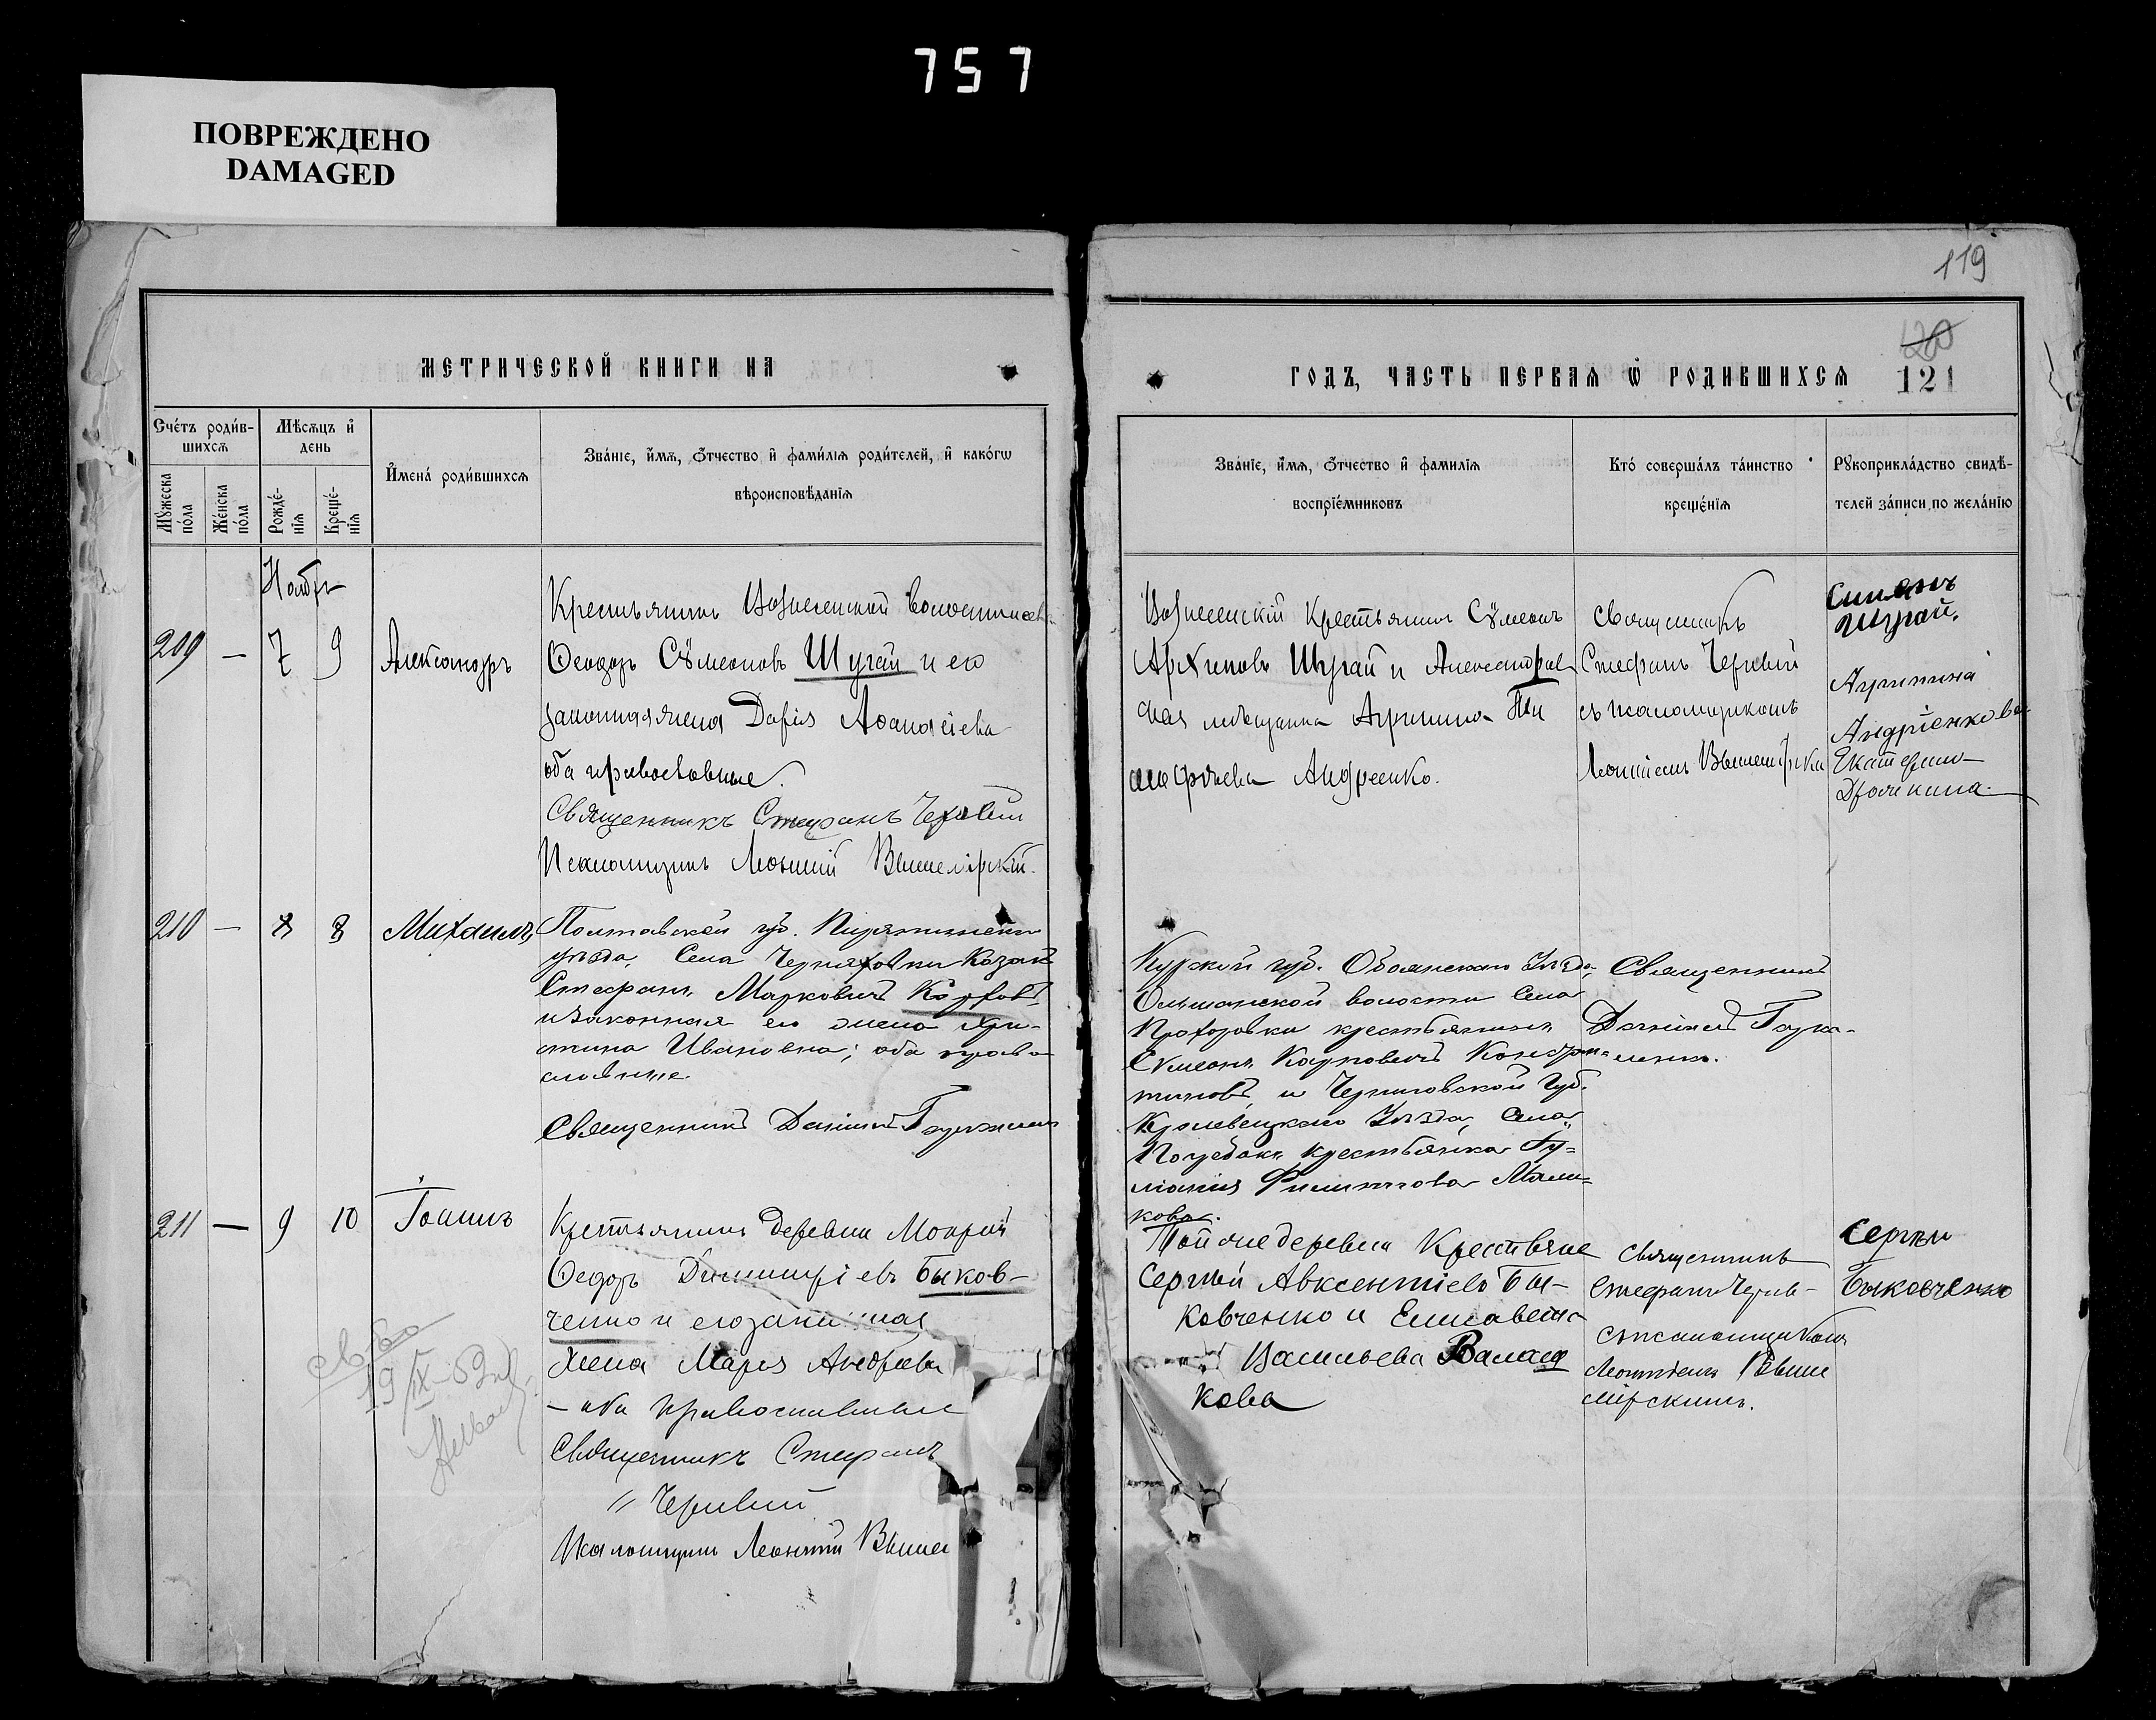 757
ПОВРЕЖДЕНО
DAMAGED
119
МЕТРИЧЕСКОЙ КНИГИ НА
ГОДЪ, ЧАСТЬ ПЕРВАѦ Ѿ РОДИВШИХСѦ
120
121
Счétъ роди́в-
шихсѧ
Мѣсѧцъ и҆
день
Мꙋжеска
по́ла
Же́нска
по́ла
Рожде́-
нїѧ
Креще́-
нїѧ
И҆мена̀ роди́вшихсѧ
Зва́нїе, и҆́мѧ, ѻ҆́тчество и҆ фами́лїѧ роди́телей, и҆ како́гѡ
вѣроисповѣ́данїѧ
Зва́нїе, и҆́мѧ, ѻ҆́тчество и҆ фамилїѧ
воспрїе́мниковъ
Кто̀ соверша́лъ та́инство
креще́нїѧ
Рꙋкоприкла́дство свидѣ́-
телей за́писи по жела́нїю
Ноябрь
209 — 7 9 Александръ
Крестьянинъ Вознесенской волости
Ѳеодоръ Сѵмеоновъ Шугай и его
законная жена Дарія Аѳанасіева
оба православные.
Священникъ Стефанъ Чернвий
Псаломщикъ Леонтій Вышемірскій.
Вознесенскій Крестьянинъ Сѵмеонъ
Архиповъ Шугай и Александров
ская мѣщанка Агриппина Ти
моѳеева Андреенко.
Священникъ
Стефанъ Чернвий
съ псаломщикомъ
Леонтіемъ Вышемірски
Симеонъ
Шугай.
Агрипина
Андріенкова
Екатерина
210 — 8 8 Михаилъ
Полтавской губ. Пирятинскаго
уѣзда, Села Черняховки Козакъ
Стефанъ Марковичъ
и законная его жена Хри-
стина Ивановна; оба право-
славные.
Священникъ Даніилъ
Курской губ. Обоянскаго Уѣзда,
Ольшанской волости Села
Прохоровки крестьянинъ
Сѵмеонъ Карповичъ Кондра-
тиковъ и Черниговской Губ.
Кролевецкаго Уѣзда, Села
Погребокъ крестьянка Іу-
ліанія Филиппова Мали-
кова.
Священникъ
Даніилъ
211 — 9 10 Іоаннъ
Крестьянинъ деревни Мокрой
Ѳеодоръ Димитріевъ Быков-
ченко и его законная
жена Марія Андреева
— оба православные
Священникъ Стефанъ
" Чернвий
Псаломщикъ Леонтій Выше
Той же деревни Крестьяне
Сергѣй Авксентіевъ Бы-
ковченко и Елисавета
Васильева Валаш
кова
Священникъ
Стефанъ
съ псаломщикомъ
Леонтіемъ Выше
мірскимъ.
Сергѣй
Быковченко
19/IX